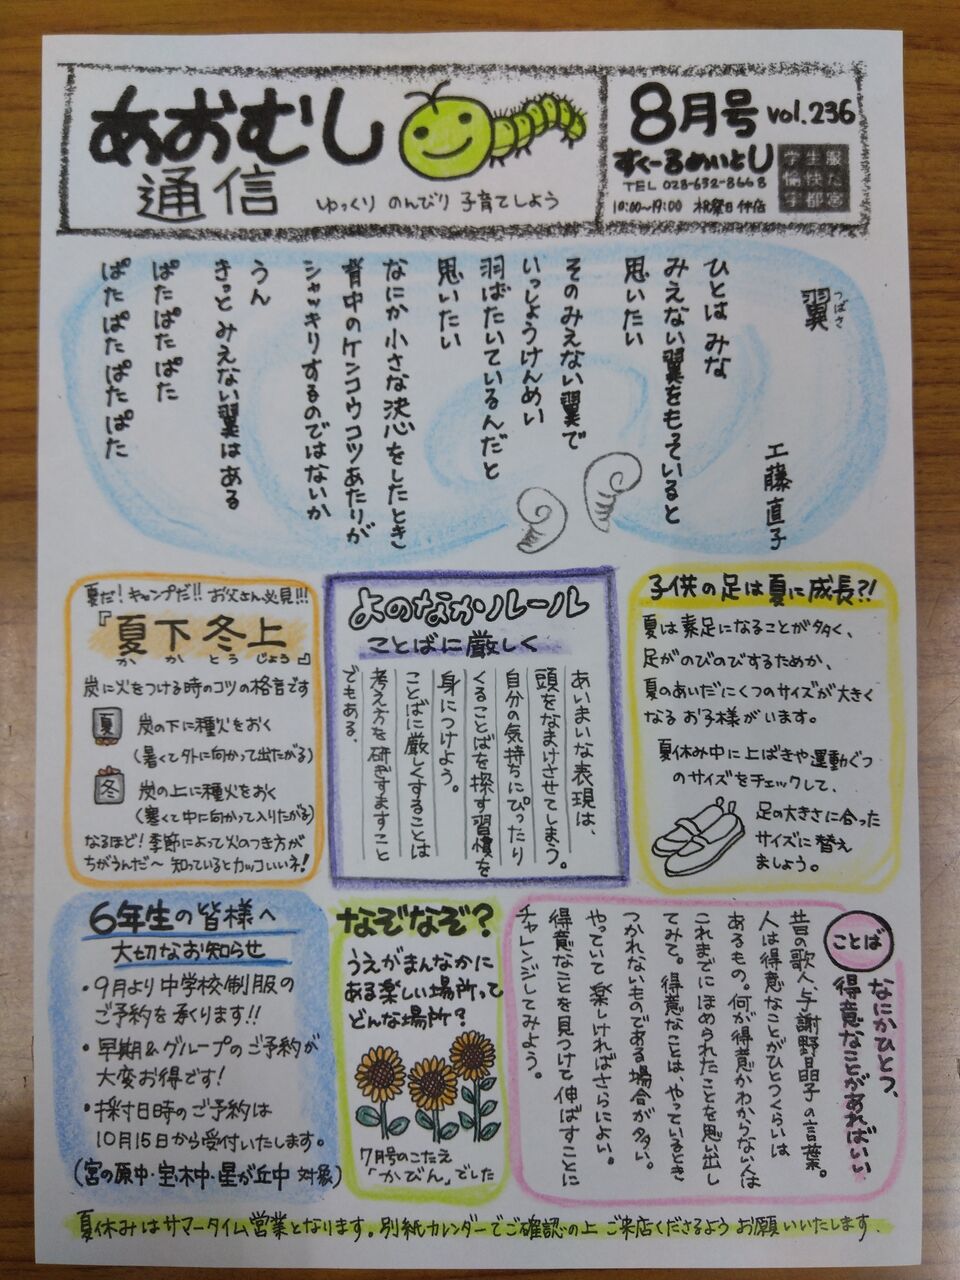 あおむし
通信
ゆっくり のんびり 子育てしよう
8月号 vol.236
すくーるめいとU
TEL 028-632-8668
10:00~19:00 祝祭日休店
学生服
愉快だ
宇都宮
翼
つばさ
工藤直子
ひとは みな
みえない翼をもっていると
思いたい
そのみえない翼で
いっしょうけんめい
羽ばたいているんだと
思いたい
なにか 小さな決心をしたとき
背中のケンコウコツあたりが
シャッキリするのではないか
うん
きっと みえない翼はある
ぱたぱたぱた
ぱたぱたぱたぱた
夏だ!キャンプだ!! お父さん必見!!!
『夏下冬上』
か か とう じょう
炭に火をつける時のコツの格言です
夏
炭の下に種火をおく
(暑くて外に向かって出たがる)
冬
炭の上に種火をおく
(寒くて中に向かって入りたがる)
なるほど!季節によって火のつき方が
ちがうんだ~ 知っているとカッコいいネ!
よのなかルール
ことばに厳しく
あいまいな表現は、
頭をなまけさせてしまう。
自分の気持ちにぴったり
くることばを探す習慣を
身につけよう。
ことばに厳しくすることは
考え方を研ぎすますこと
でもある。
子供の足は夏に成長?!
夏は素足になることが多く、
足がのびのびするためか、
夏のあいだにくつのサイズが大きく
なる お子様がいます。
夏休み中に上ばきや運動ぐつ
のサイズをチェックして、
足の大きさに合った
サイズに替え
ましょう。
6年生の皆様へ
大切なお知らせ
・9月より中学校制服の
ご予約を承ります!!
・早期&グループのご予約が
大変お得です!
・採寸日時のご予約は
10月15日から受付いたします。
(宮の原中・宝木中・星が丘中 対象)
なぞなぞ?
うえがまんなかに
ある楽しい場所って
どんな場所?
7月号のこたえ
「かびん」でした
ことば
なにかひとつ、
得意なことがあればいい
昔の歌人、与謝野晶子の言葉。
人は得意なことがひとつくらいは
あるもの。何が得意かわからない人は
これまでにほめられたことを思い出し
てみて。得意なことは、やっているとき
つかれないものである場合が多い。
やっていて楽しければさらによい。
得意なことを見つけて伸ばすことに
チャレンジしてみよう。
夏休みはサマータイム営業となります。別紙カレンダーでご確認の上 ご来店くださるよう お願いいたします。